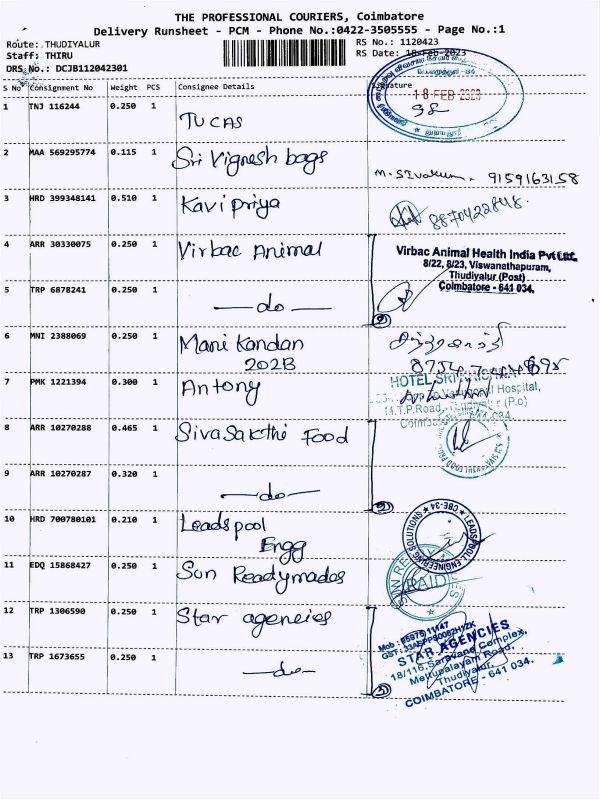 THE PROFESSIONAL COURIERS, Coimbatore
Delivery Runsheet - PCM - Phone No.:0422-3505555 - Page No.:1
Route: THUDIYALUR
RS No.: 1120423
Staff: THIRU
RS Date: 18-Feb-2023
DRS No.: DCJB112042301
S No Consignment No Weight PCS Consignee Details Signature
18 FEB 2023
1 TNJ 116244 0.250 1 TUCAS
2 MAA 569295774 0.115 1 Sri Vignesh bags
M. Sivakum. 9159163158
3 HRD 399348141 0.510 1 Kavi priya
8870422848
4 ARR 30330075 0.250 1 Virbac Animal
Virbac Animal Health India Pvt Ltd.
8/22, 8/23, Viswanathapuram,
Thudiyalur (Post)
Coimbatore - 641 034.
5 TRP 6878241 0.250 1 —do—
2
6 MNI 2388069 0.250 1 Mani Kandan
202B
7 PMK 1221394 0.300 1 Antony
HOTEL SRI
Hospital,
M.T.P.Road, Thudiyalur (P.o)
8 ARR 10270288 0.465 1 SivaSakthi Food
9 ARR 10270287 0.320 1 —do—
2
10 HRD 700780101 0.210 1 Leadspool
Engg
LEADSPOOL ENGINEERING SOLUTIONS ★ CBE-34 ★
11 EDQ 15868427 0.250 1 Sun Readymades
12 TRP 1306590 0.250 1 Star agencies
STAR AGENCIES
18/116, Saravana Complex,
Mettupalayam Road,
Thudiyalur,
COIMBATORE - 641 034.
13 TRP 1673655 0.250 1 —do—